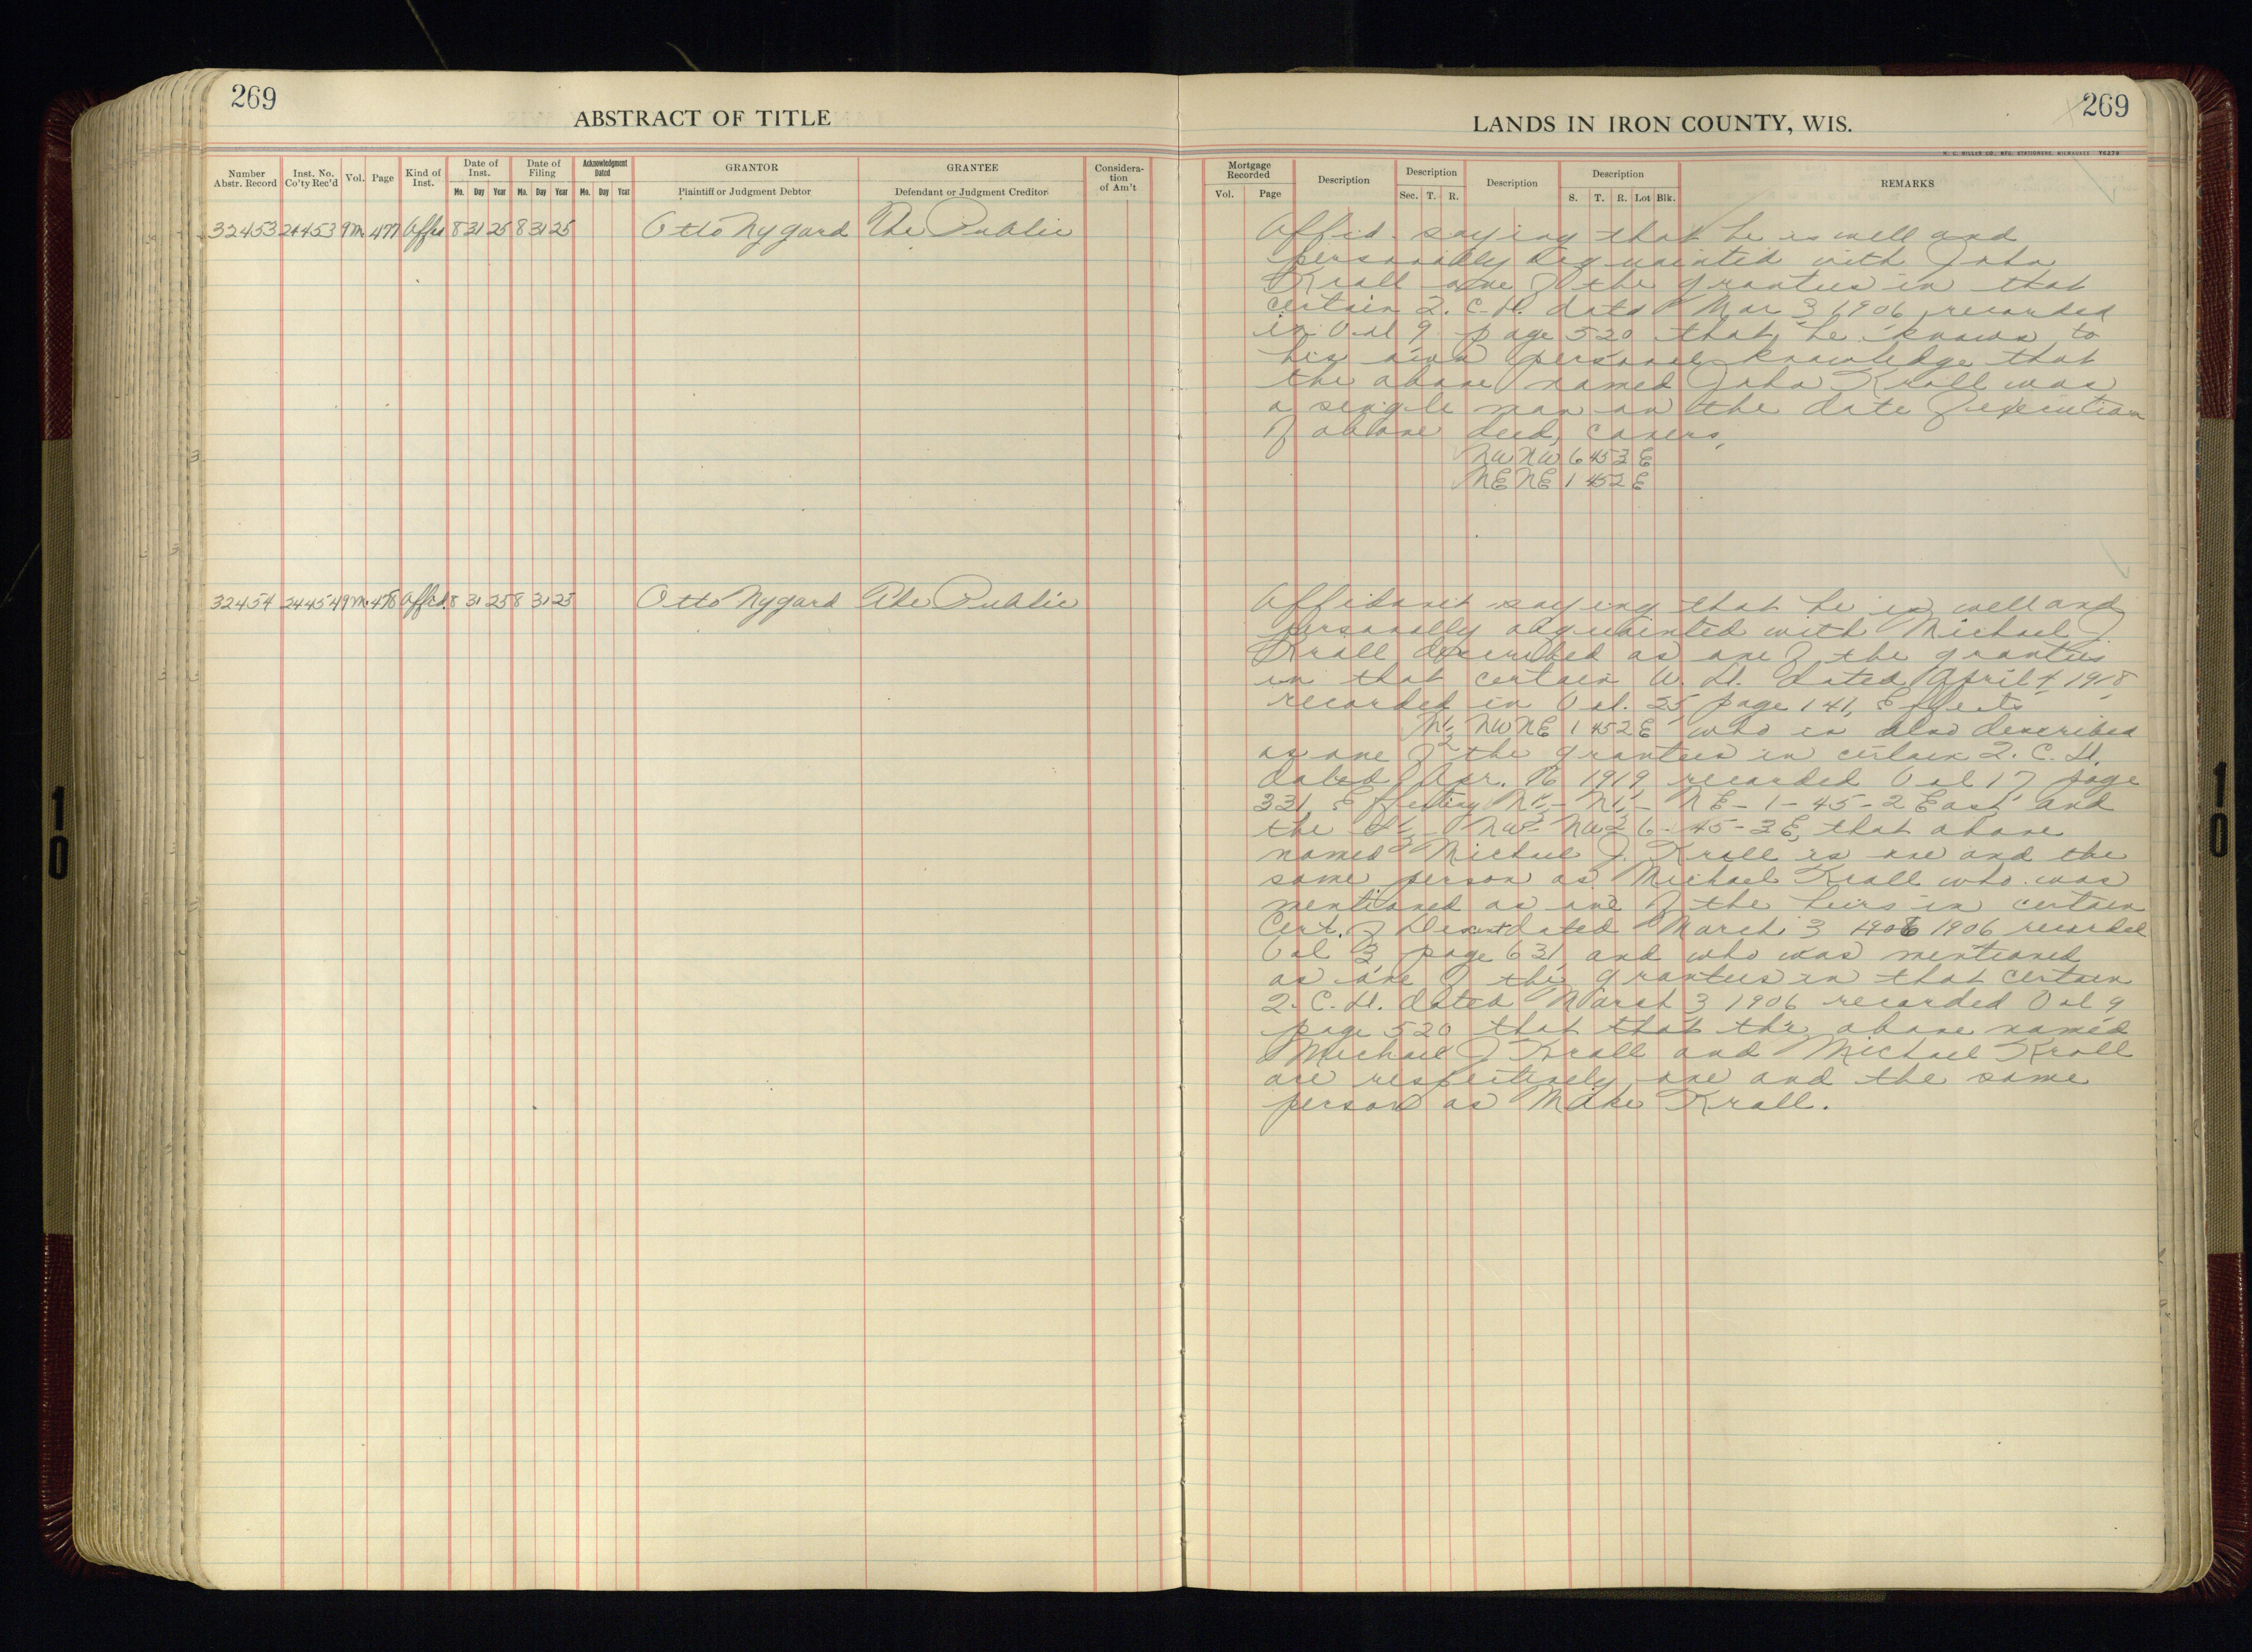 269
ABSTRACT OF TITLE
Number Abstr. Record
Inst. No. Co'ty Rec'd
Vol.
Page
Kind of Inst.
Date of Inst.
Mo. Day Year
Date of Filing
Mo. Day Year
Acknowledgment Dated
Mo. Day Year
GRANTOR
Plaintiff or Judgment Debtor
GRANTEE
Defendant or Judgment Creditor
Considera-tion of Am't
32453 24453 9M 477 Affid 8 31 25 8 31 25 Otto Nygard The Public
32454 24454 9M. 478 Affid. 8 31 25 8 31 25 Otto Nygard The Public
LANDS IN IRON COUNTY, WIS.
269
H. C. MILLER CO., MFG. STATIONERS, MILWAUKEE 76278
Mortgage Recorded
Vol. Page
Description
Description
Sec. T. R.
Description
Description
S. T. R. Lot Blk.
REMARKS
Affid. saying that he is well and
personally acquainted with John
Krall one of the grantees in that
certain 2. C. D. dated Mar 3, 1906, recorded
in Vol 9 page 520 that he knows to
his own personal knowledge that
the above named John Krall was
a single man on the date of execution
of above deed, covers,
NW NW 6 45 3 E
NE NE 1 45 2 E
Affidavit saying that he is well and
personally acquainted with Michael J.
Krall described as one of the grantees
in that certain W. D. dated April 4 1918,
recorded in Vol. 25, page 141, Effects
N½ NW NE 1 45 2 E who is also described
as one of the grantees in certain 2. C. D.
dated Apr. 16 1919, recorded Vol 17 page
331, Effecting N½ - N½ - NE - 1 - 45 - 2 East and
the NW NW 6 - 45 - 3 E, that above
named Michael J. Krall is one and the
same person as Michael Krall who was
mentioned as one of the heirs in certain
Cert. of Descent dated March 3 1906 1906 recorded
Vol 3, page 631, and who was mentioned
as one of the grantees in that certain
2. C. D. dated March 3 1906 recorded Vol 9
page 520 that that the above named
Michael J Krall and Michael Krall
are respectively one and the same
person as Mike Krall.
10
10